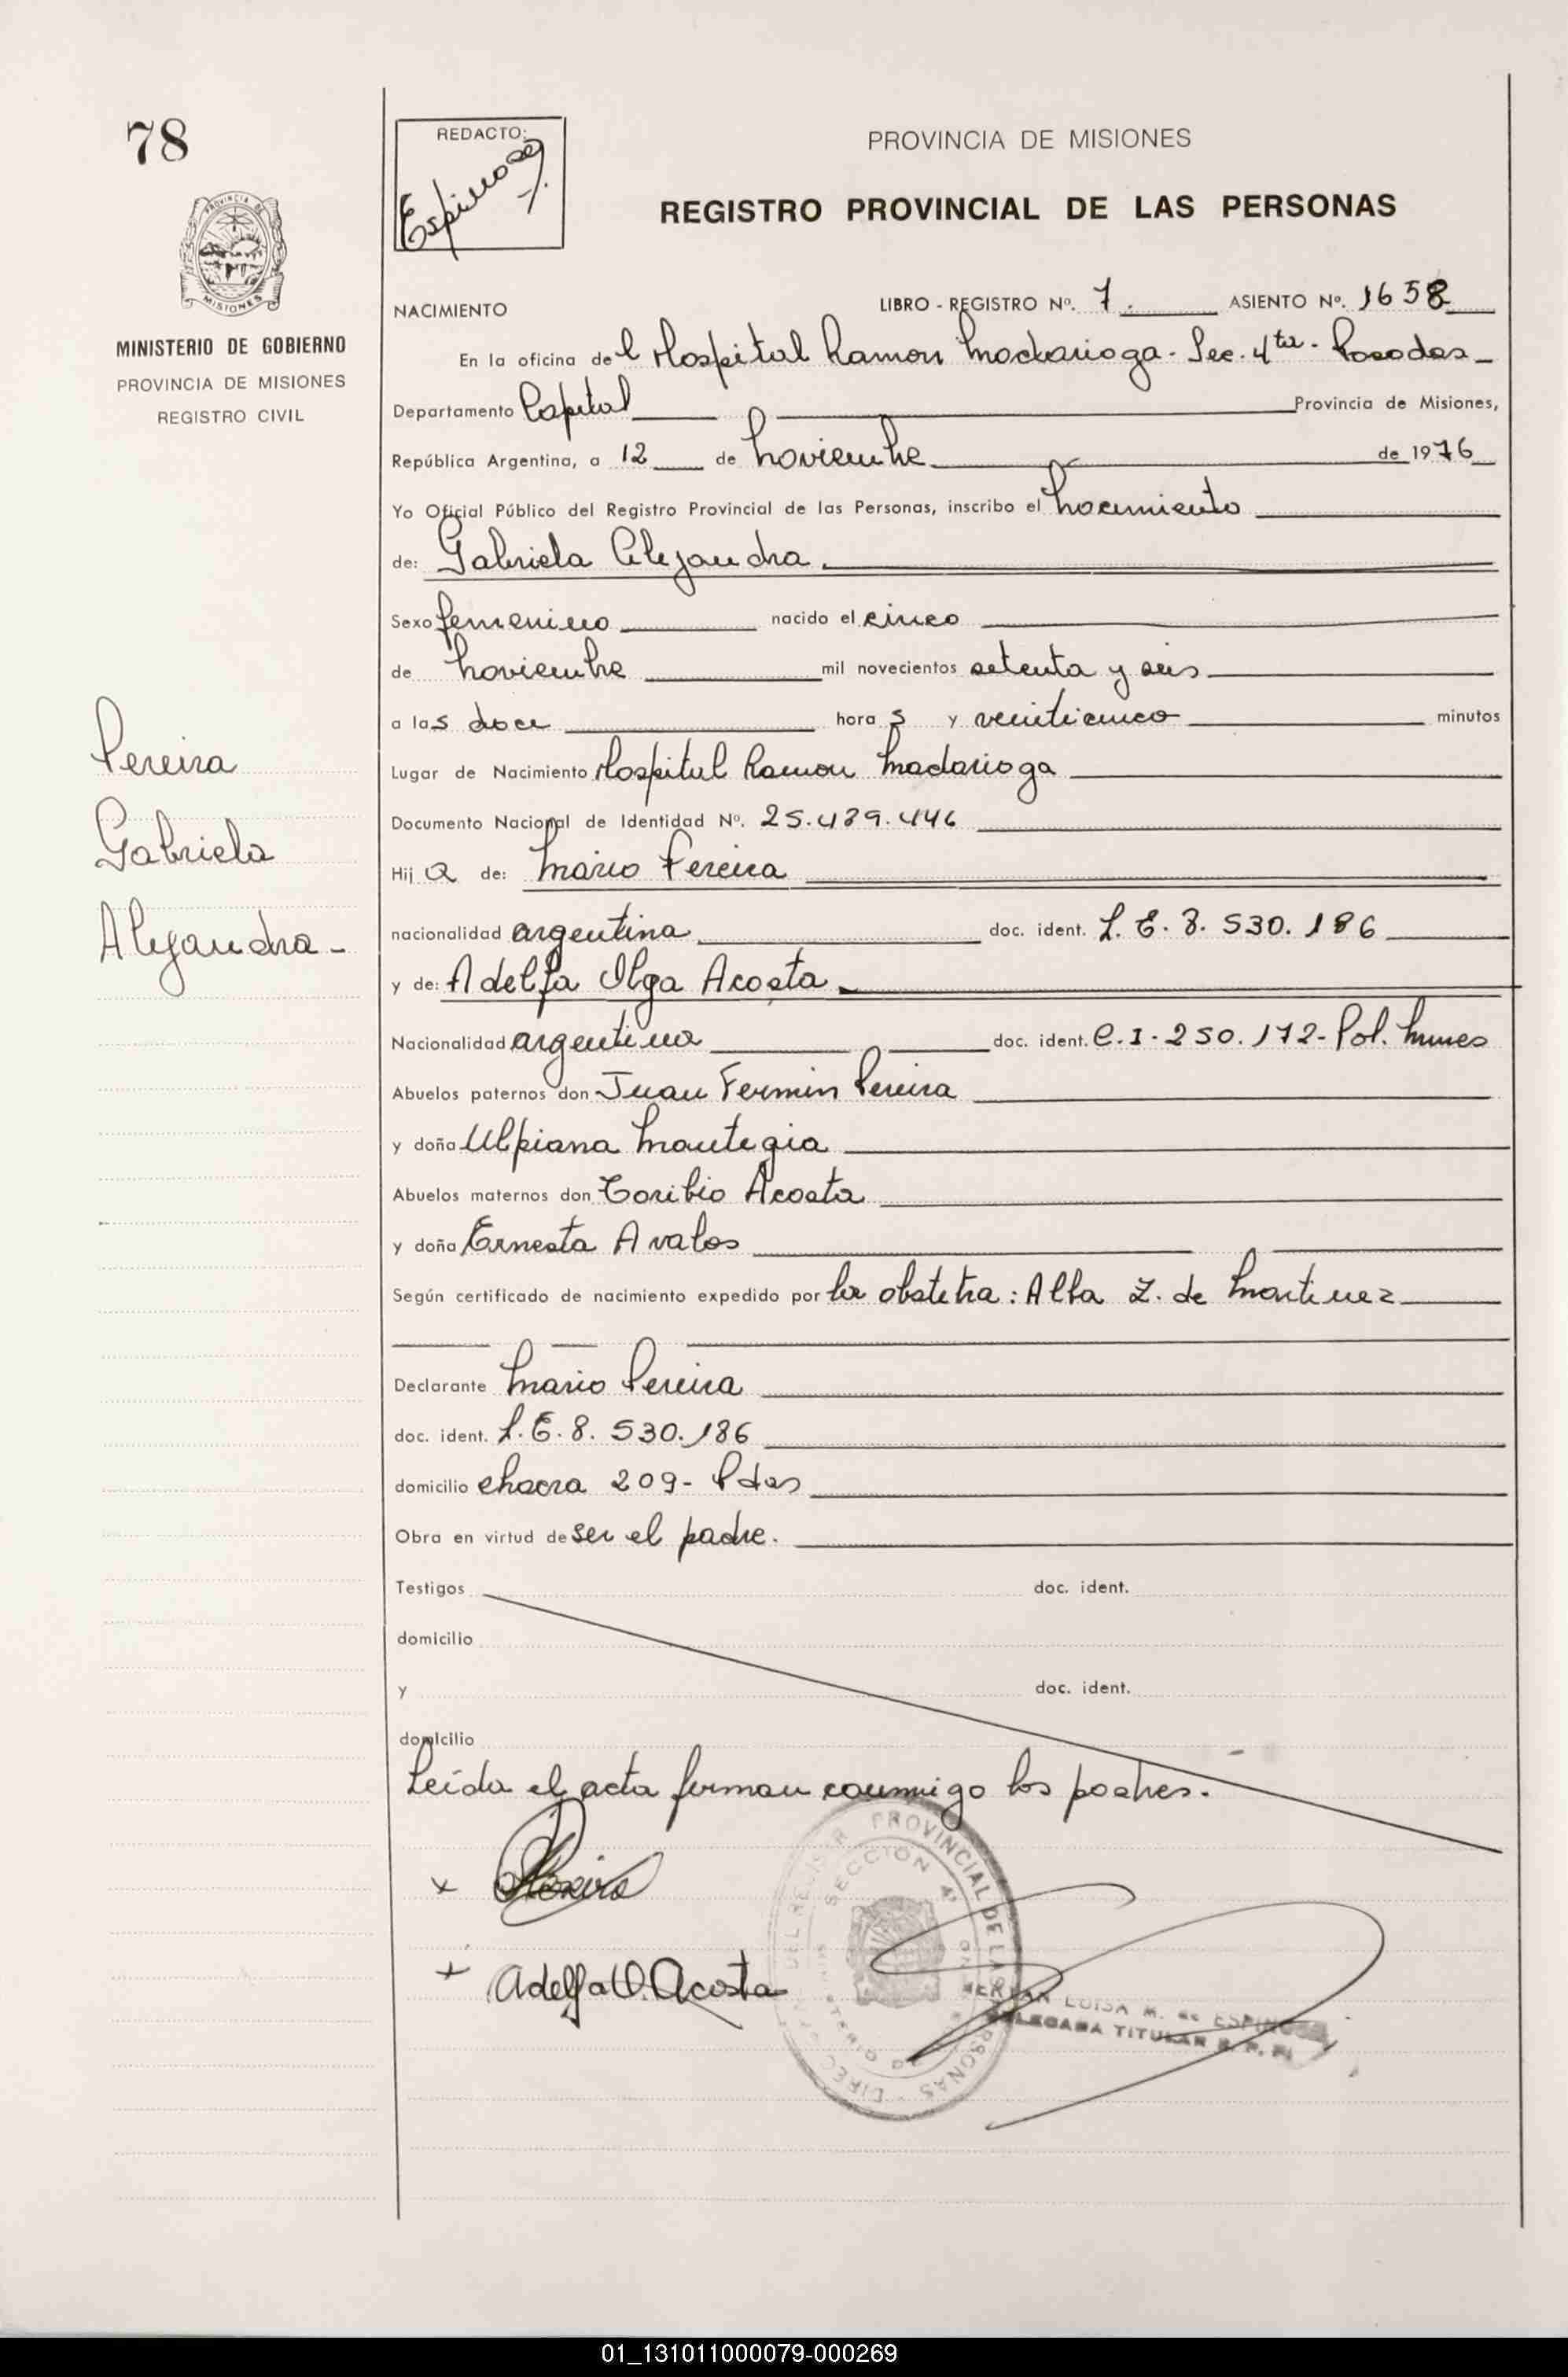 78
REDACTO:
Espinosa
PROVINCIA DE MISIONES
REGISTRO PROVINCIAL DE LAS PERSONAS
PROVINCIA DE
MISIONES
MINISTERIO DE GOBIERNO
PROVINCIA DE MISIONES
REGISTRO CIVIL
Pereira
Gabriela
Alejandra -
NACIMIENTO LIBRO - REGISTRO Nº. 7. ASIENTO Nº. 1658
En la oficina del Hospital Ramon Madariaga - Sec. 4ta - Posadas
Departamento Capital Provincia de Misiones,
República Argentina, a 12 de Noviembre de 1976
Yo Oficial Público del Registro Provincial de las Personas, inscribo el Nacimiento
de: Gabriela Alejandra
Sexo femenino nacido el cinco
de Noviembre mil novecientos setenta y seis
a las doce horas y veinticinco minutos
Lugar de Nacimiento Hospital Ramon Madariaga
Documento Nacional de Identidad Nº. 25.439.446
Hija de: Mario Pereira
nacionalidad argentina doc. ident. L. E. 8. 530. 186
y de: Adelfa Olga Acosta
Nacionalidad argentina doc. ident. C. I - 250. 172 - Pol. Mnes
Abuelos paternos don Juan Fermin Pereira
y doña Ulpiana Mantegia
Abuelos maternos don Toribio Acosta
y doña Ernesta Avalos
Según certificado de nacimiento expedido por la obstetra: Alba Z. de Martinez
Declarante Mario Pereira
doc. ident. L. E. 8. 530. 186
domicilio chacra 209 - Pdas
Obra en virtud de ser el padre.
Testigos doc. ident.
domicilio
y doc. ident.
domicilio
Leída el acta firman conmigo los padres.
x Pereira
x Adelfa O. Acosta
PROVINCIAL DE LAS PERSONAS
SECCION 4ª
LUISA M. de ESPINOSA
DELEGADA TITULAR R. P. P.
01_131011000079-000269